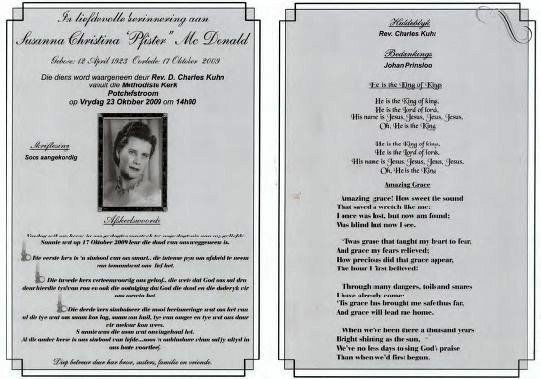 In liefdevolle herinnering aan
Susanna Christina "Pfister" Mc Donald
Gebore: 12 April 1923 Oorlede: 17 Oktober 2009
Die diens word waargeneem deur Rev. D. Charles Kuhn
vanuit die Methodiste Kerk
Potchefstroom
op Vrydag 23 Oktober 2009 om 14h00
Skriflesing
Soos aangekondig
Afskeidswoorde
Sannie wat op 17 Oktober 2009 deur die dood van ons weggeneem is.
Die eerste kers is 'n simbool van ons smart.. die intense pyn om afskeid te neem
van iemand wat ons lief het.
Die tweede kers verteenwoordig ons geloof.. die wete dat God ons sal dra
deur hierdie tyd van rou en ook die oortuiging dat God die dood en die duisternis vir
ons oorwin het.
Die derde kers simboliseer die mooi herinneringe wat ons het van
al die tye wat ons saam kon lag, saam kon huil, tye van sorge en tye wat ons daar
vir mekaar kon wees.
Sannie was die mens wat ons liefgehad het.
Diep betreur deur haar broer, susters, familie en vriende.
Huldeblyk
Rev. Charles Kuhn
Bedankings
Johan Prinsloo
He is the King of Kings
He is the King of kings,
He is the Lord of lords,
His name is Jesus, Jesus, Jesus, Jesus,
Oh, He is the King
He is the King of kings,
He is the Lord of lords,
His name is Jesus, Jesus, Jesus, Jesus,
Oh, He is the King
Amazing Grace
Amazing grace! How sweet the sound
That saved a wretch like me;
I once was lost, but now am found;
Was blind but now I see.
'Twas grace that taught my heart to fear,
And grace my fears relieved;
How precious did that grace appear,
The hour I first believed!
Through many dangers, toils and snares
I have already come;
'Tis grace has brought me safe thus far,
And grace will lead me home.
When we've been there a thousand years
Bright shining as the sun,
We've no less days to sing God's praise
Than when we'd first begun.